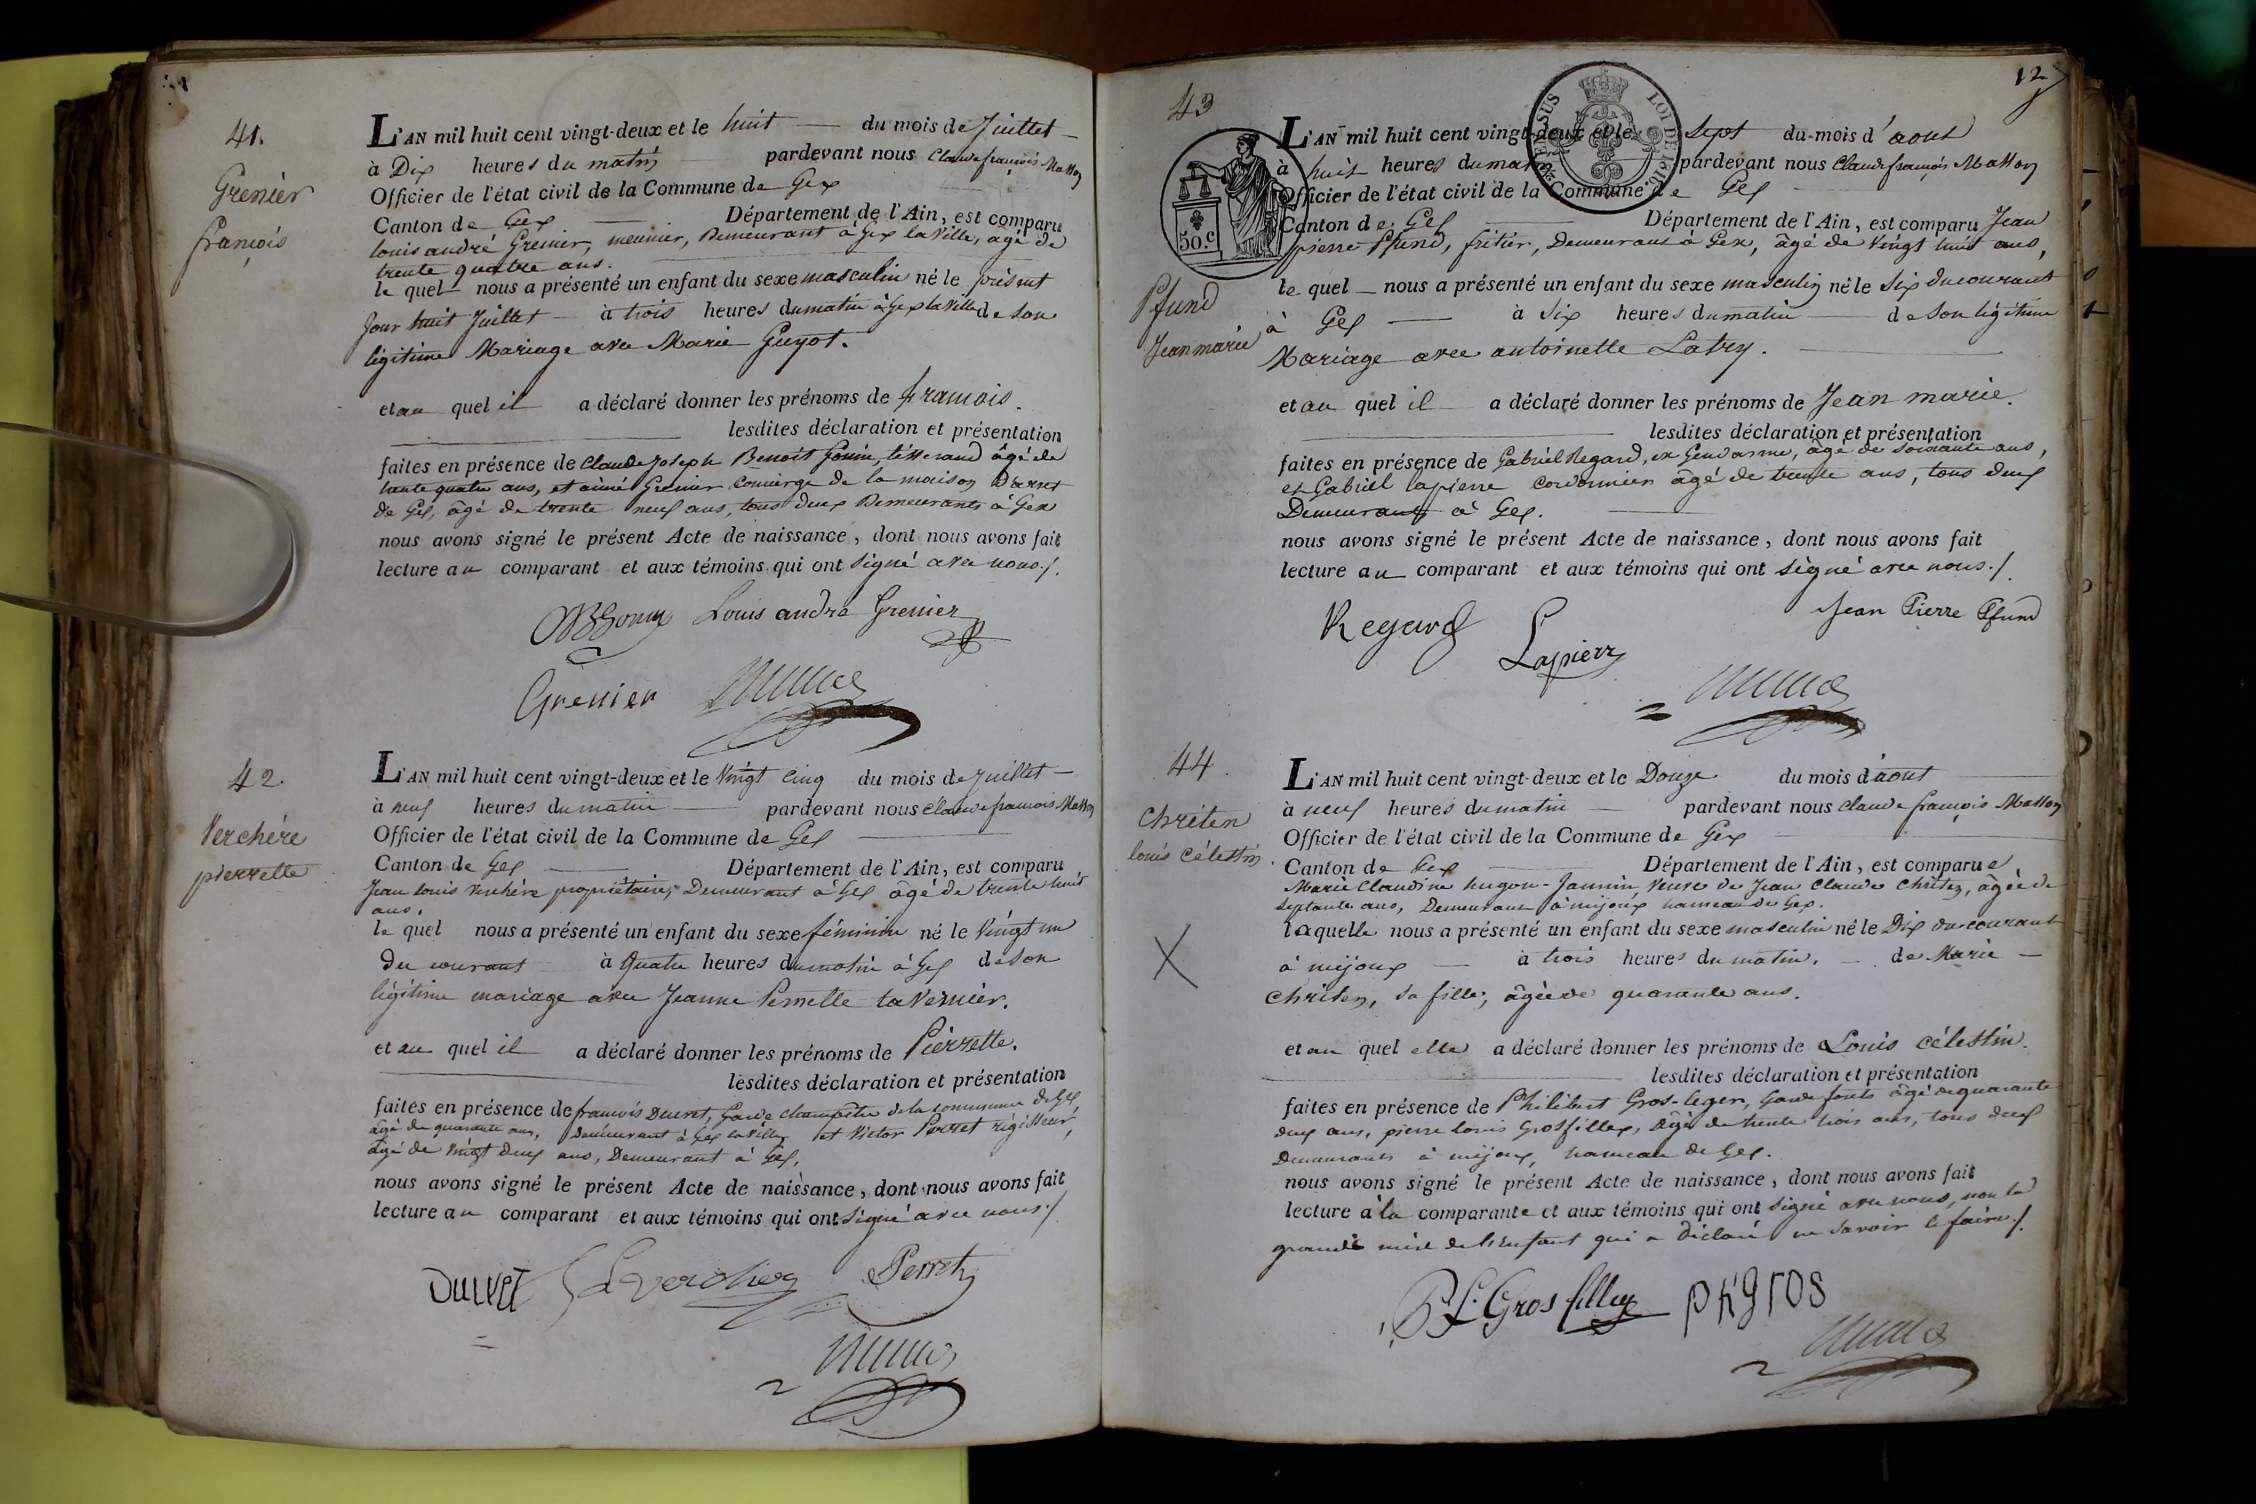 41.
Grenier
françois
L'AN mil huit cent vingt-deux et le huit du mois de Juillet
à Dix heures du matin pardevant nous Claude françois Masson
Officier de l'état civil de la Commune de Gex
Canton de Gex Département de l'Ain, est comparu
louis andré Grenier, meunier, Demeurant à Gex la Ville, âgé de
trente quatre ans.
le quel nous a présenté un enfant du sexe masculin né le présent
Jour huit Juillet à trois heures du matin à Gex la Ville de son
légitime Mariage avec Marie Guyot.
et au quel il a déclaré donner les prénoms de francois.
lesdites déclaration et présentation
faites en présence de Claude Joseph Benoit Gonin, tisserand âgé de
trente quatre ans, et aimé Grenier Concierge de la maison D'arret
de Gex, âgé de trente neuf ans, tous deux Demeurants à Gex
nous avons signé le présent Acte de naissance, dont nous avons fait
lecture au comparant et aux témoins qui ont signé avec nous./.
Louis andré Grenier
Grenier
42.
Verchére
pierrette
L'AN mil huit cent vingt-deux et le Vingt Cinq du mois de Juillet
à neuf heures du matin pardevant nous Claude francois Masson
Officier de l'état civil de la Commune de Gex
Canton de Gex Département de l'Ain, est comparu
Jean Louis Verchére propriétaire, Demeurant à Gex âgé de trente huit
ans.
le quel nous a présenté un enfant du sexe féminin né le Vingt un
du courant à Quatre heures du matin à Gex de son
légitime mariage avec Jeanne Pernette taVernier.
et au quel il a déclaré donner les prénoms de Pierrette.
lesdites déclaration et présentation
faites en présence de francois Ducret, Garde Champêtre de la commune de Gex,
âgé de quarante ans, Demeurant à Gex la Ville et Victor Perret régisseur,
âgé de Vingt deux ans, Demeurant à Gex.
nous avons signé le présent Acte de naissance, dont nous avons fait
lecture au comparant et aux témoins qui ont signé avec nous./
Ducret Perret
12
43
50.c
LOI DE 1816.
Pfund
Jean marie
L'AN mil huit cent vingt-deux et le sept du mois d'aout
à huit heures du matin pardevant nous Claude françois Masson
Officier de l'état civil de la Commune de Gex
Canton de Gex Département de l'Ain, est comparu Jean
pierre Pfund, fritier, Demeurant à Gex, âgé de Vingt huit ans,
le quel nous a présenté un enfant du sexe masculin né le six du courant
à Gex à six heures du matin de son légitime
Mariage avec antoinette Latry.
et au quel il a déclaré donner les prénoms de Jean marie.
lesdites déclaration et présentation
faites en présence de Gabriel Regard, ex Gendarme, âgé de soixante ans,
et Gabriel Lapierre cordonnier âgé de trente ans, tous deux
Demeurants à Gex.
nous avons signé le présent Acte de naissance, dont nous avons fait
lecture au comparant et aux témoins qui ont signé avec nous./.
Regard Jean Pierre Pfund
Lapierre
44.
Chréten
louis célestin
X
L'AN mil huit cent vingt-deux et le Douze du mois d'aout
à neuf heures du matin pardevant nous Claude françois Masson
Officier de l'état civil de la Commune de Gex
Canton de Gex Département de l'Ain, est comparue
Marie Claudine hugon-Jannin, Veuve de Jean Claude Chriten, âgée de
septante ans, Demeurant à mijoux hameau de Gex.
laquelle nous a présenté un enfant du sexe masculin né le Dix du courant
à mijoux à trois heures du matin, de Marie
Chriten, sa fille, âgée de quarante ans.
et au quel elle a déclaré donner les prénoms de Louis célestin.
lesdites déclaration et présentation
faites en présence de Philibert Gros-leger, Garde forets âgé de quarante
deux ans, pierre louis Grosfillex, âgé de trente trois ans, tous deux
Demeurants à mijoux, hameau de Gex.
nous avons signé le présent Acte de naissance, dont nous avons fait
lecture à la comparante et aux témoins qui ont signé avec nous, non la
grande mère de l'enfant qui a déclaré ne savoir le faire./.
P L Gros fillex phgros